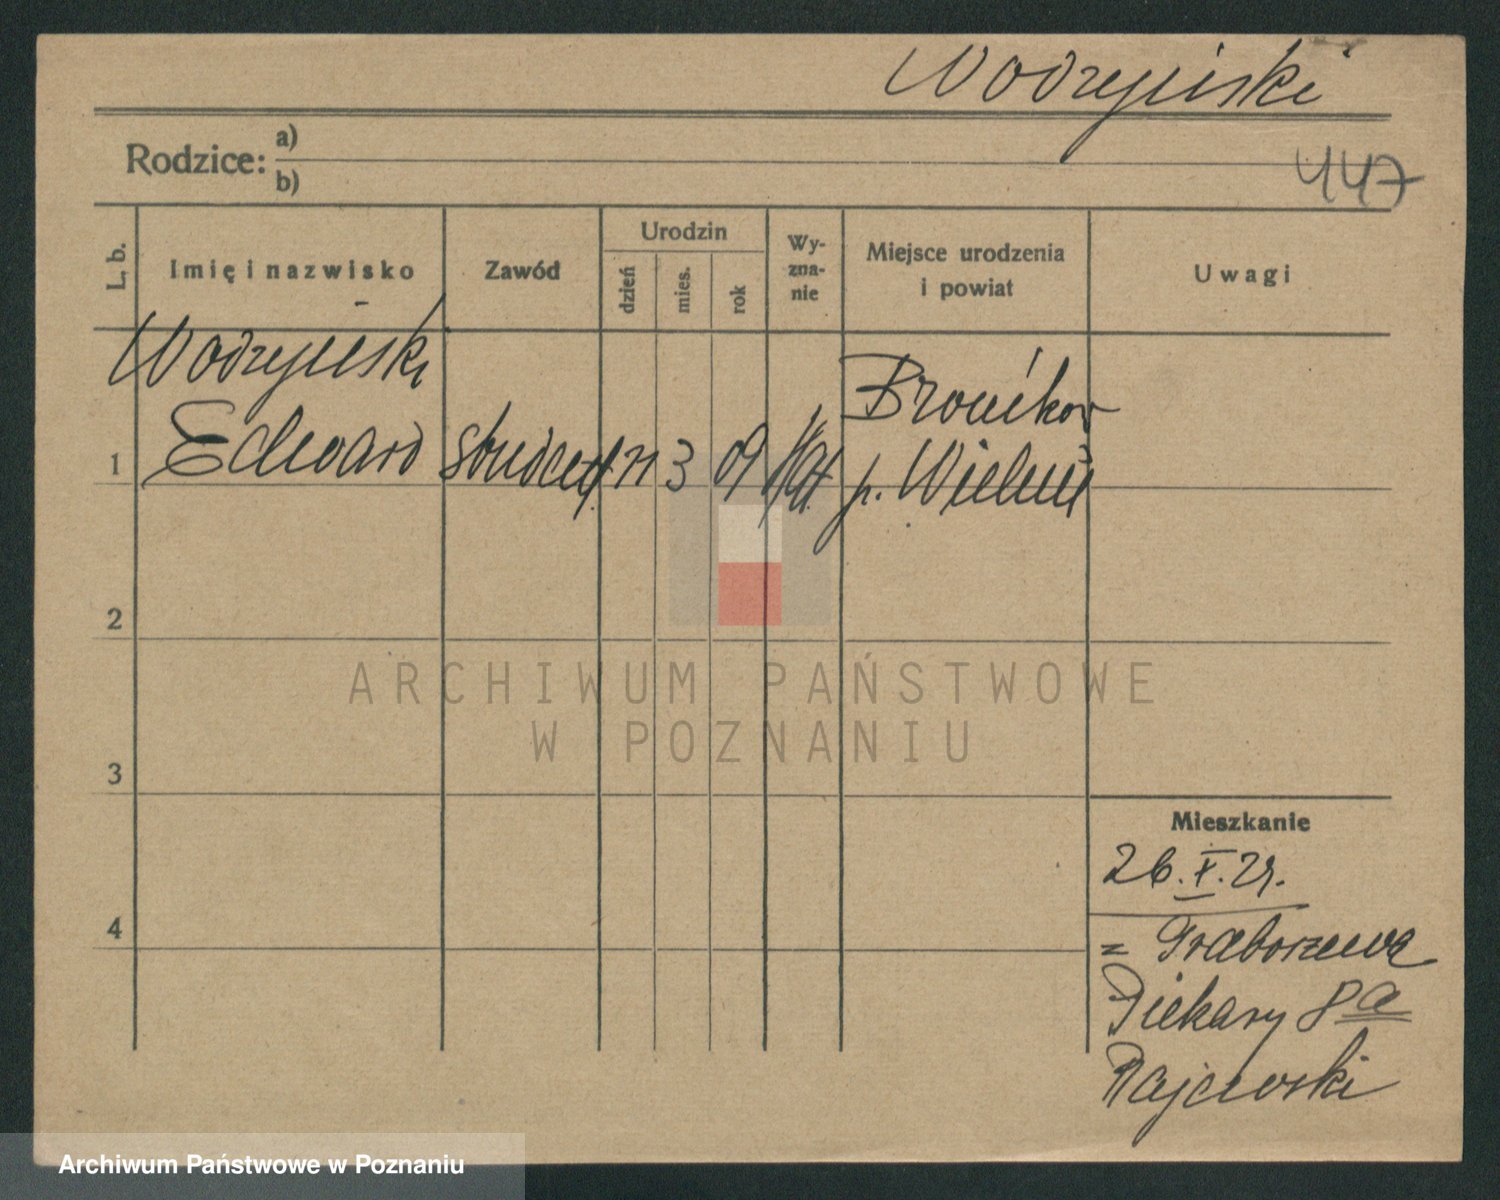 Wodzyński
Rodzice: a)
b)
447
L. b.
Imię i nazwisko
Zawód
Urodzin
dzień
mies.
rok
Wy-
zna-
nie
Miejsce urodzenia
i powiat
Uwagi
Wodzyński
Edward
student
3
09
kat.
Broników
p. Wieluń
1
2
3
4
ARCHIWUM PAŃSTWOWE
W POZNANIU
Mieszkanie
26.X.29.
z Graboszewa
Piekary 8a
Majewski
Archiwum Państwowe w Poznaniu